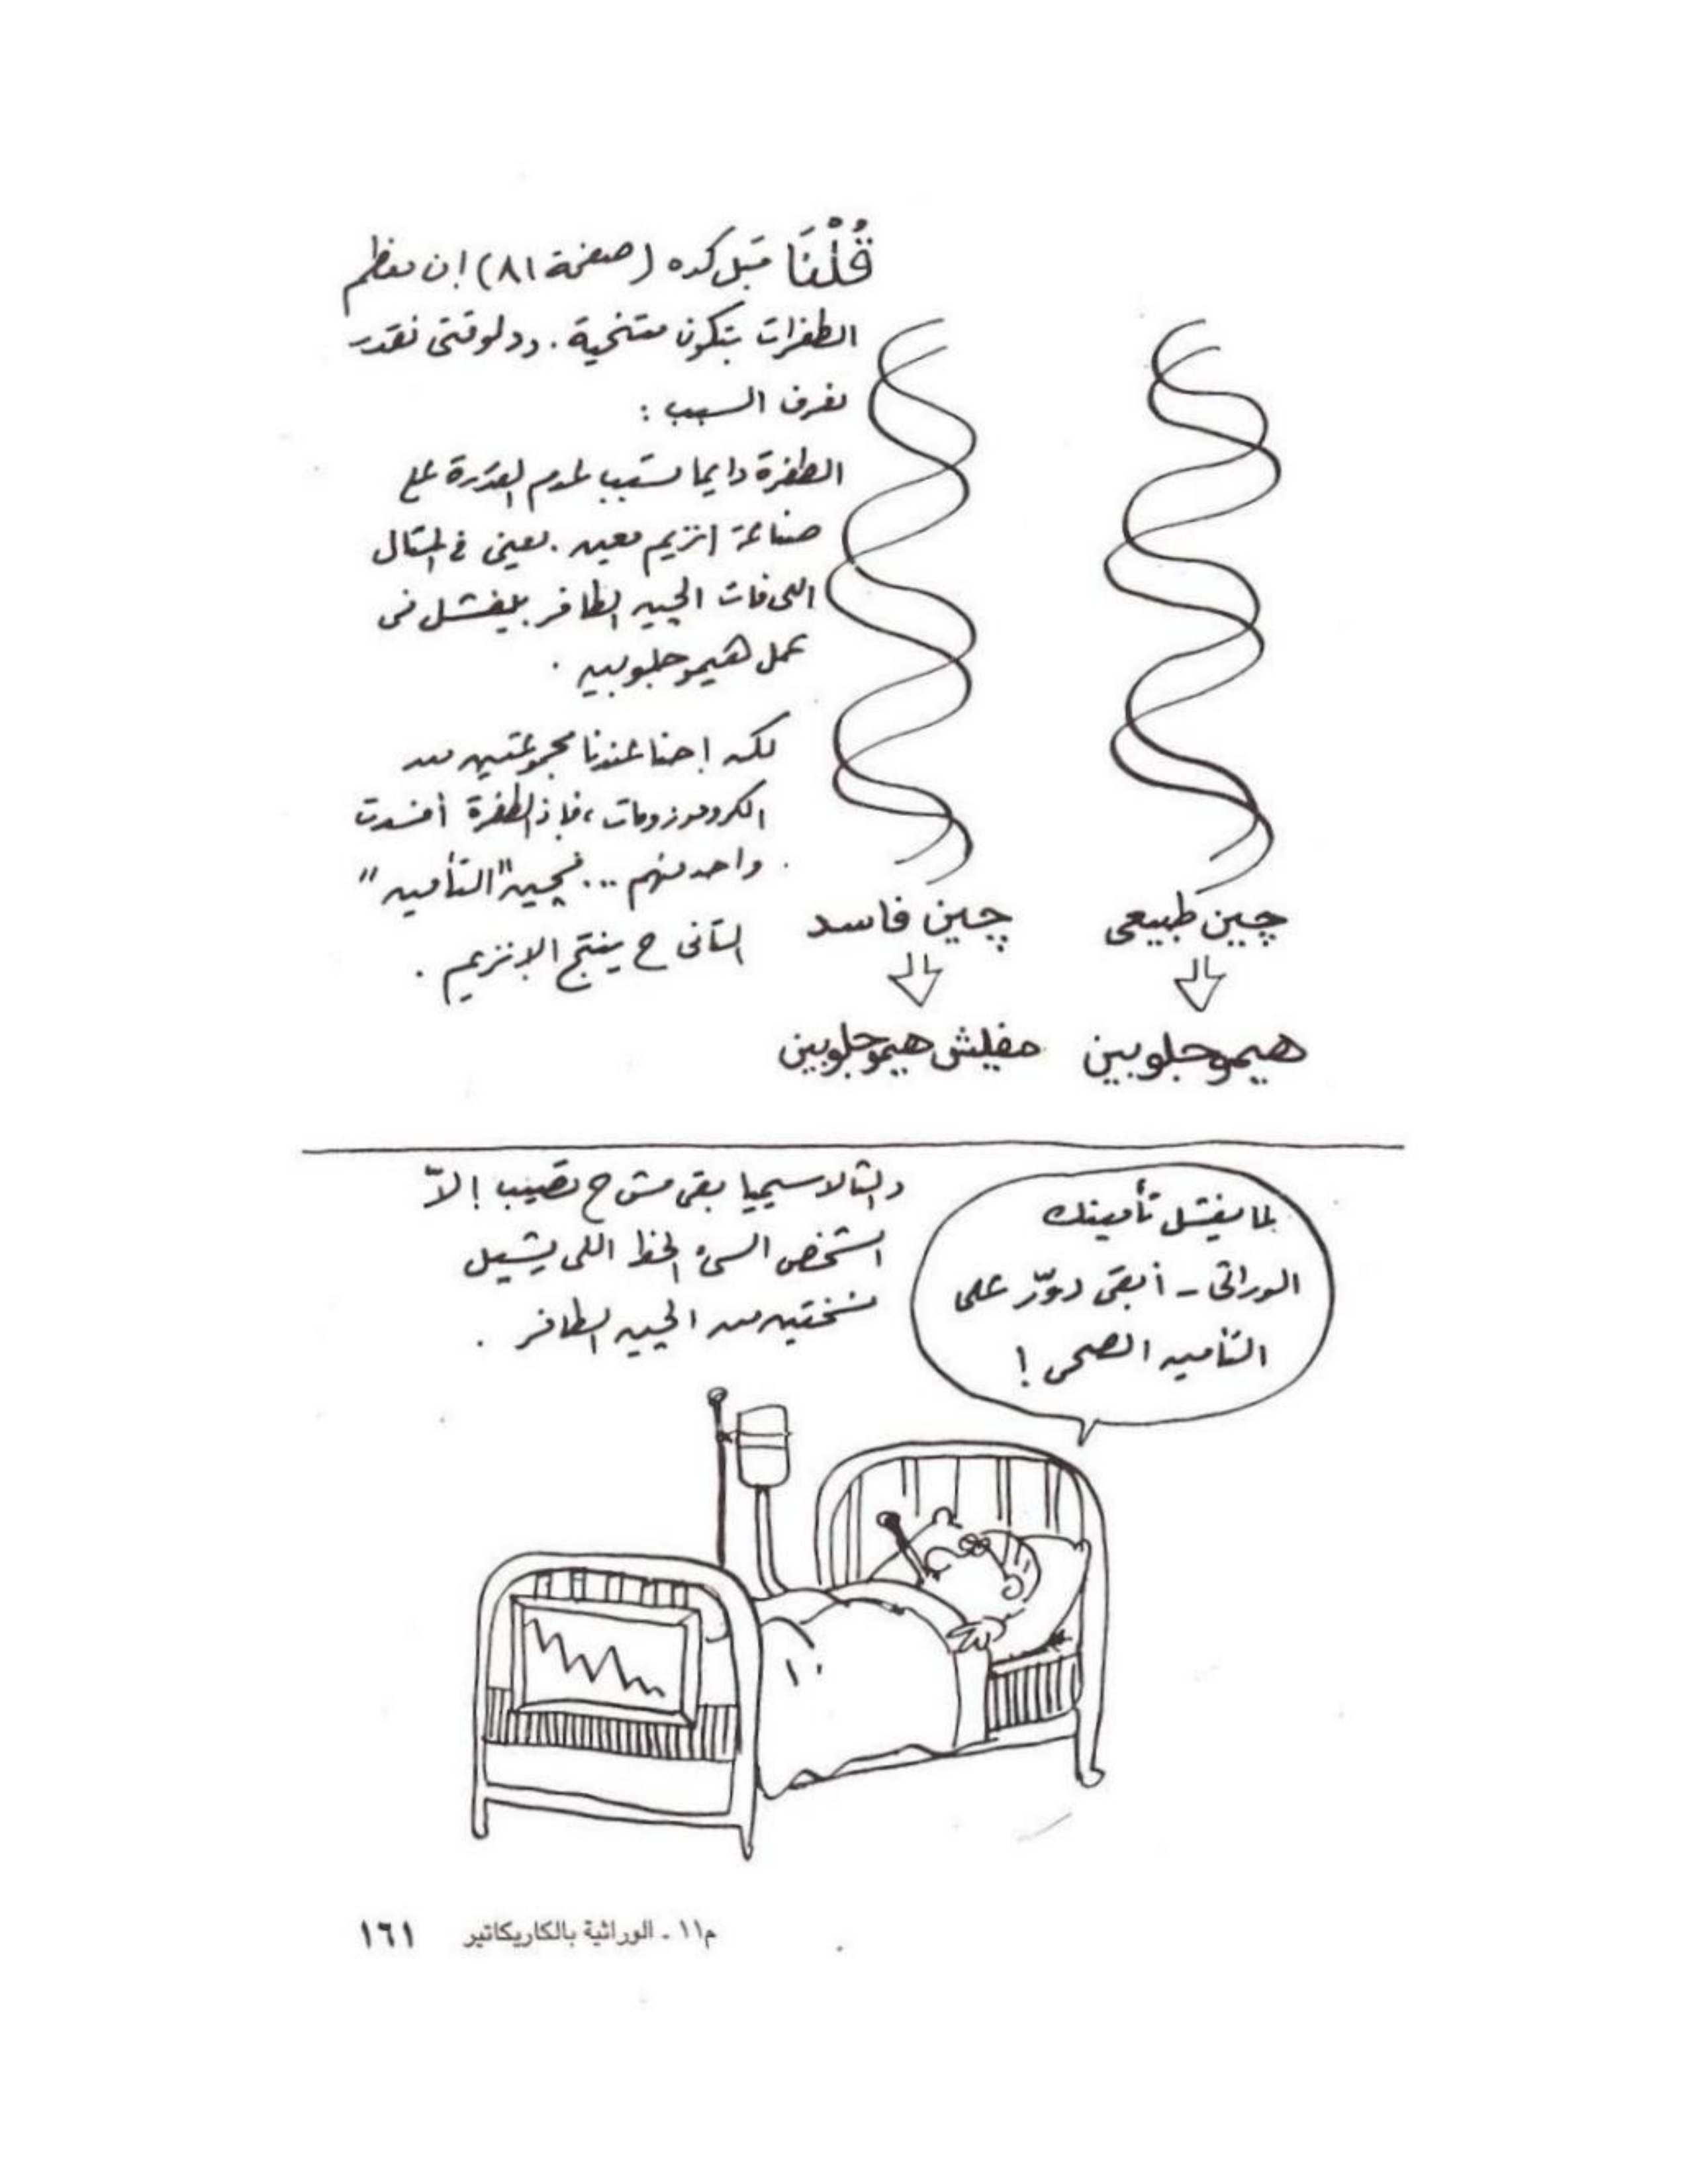 قُلْنَا قبل كده (صفحة ٨١) إن معظم
الطفرات بتكون متنحية. ودلوقتى نقدر
نعرف السبب :
الطفرة دايما تسبب عدم القدرة على
صناعة انزيم معين. يعنى في المثال
اللى فات الچين الطافر بيفشل فى
عمل هيموجلوبين .
لكن إحنا عندنا مجموعتين من
الكروموزومات، فإذا الطفرة أفسدت
واحد منهم ... فچين "التأمين"
التانى ح ينتج الإنزيم .
چين طبيعى
چين فاسد
هيموجلوبين
مفيش هيموجلوبين
والثالاسيميا بقى مش ح تصيب إلاّ
الشخص السىء الحظ اللى يشيل
نسختين من الچين الطافر .
لما يفشل تأمينك
الوراثى - أبقى دوّر على
التأمين الصحى !
م١١ ـ الوراثية بالكاريكاتير ١٦١